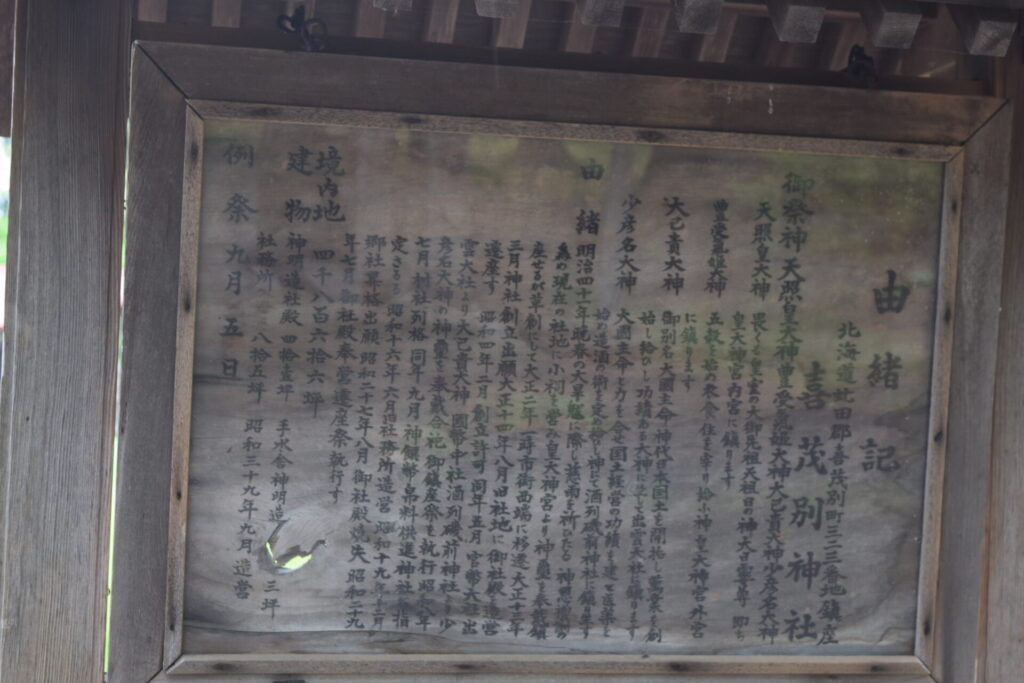 由緒記
北海道虻田郡喜茂別町二三三番地鎮座
喜茂別神社
御祭神 天照皇大神 豊受気姫大神 大己貴大神 少彦名大神
天照皇大神 畏くも皇室の大御先祖天祖日の神大日孁尊 即ち
皇大神宮内宮に鎮ります
豊受気姫大神 五穀を始め衣食住を幸り給ふ神 皇大神宮外宮
に鎮ります
大己貴大神 御別名大國主命 神代日本国土を開拓し
始し給ひし功績ある大神にして出雲大社に鎮ります
少彦名大神 大國主命と力を合せ国土経営の功績を建て
始め造酒の術を定め給ひし神にて酒列磯前神社に鎮ります
由緒 明治四十一年晩春の大旱魃に際し慈雨を祈ひたる
為め現在の社地に小祠を営み皇大神宮より神璽を奉戴鎮
座せるが草創にして大正二年一時市街西端に移遷大正十三年
三月神社創立出願大正十四年八月旧社地に御社殿を造営
遷座す 昭和四年二月創立許可同年五月 官幣大社出
雲大社より大己貴大神 國幣中社酒列磯前神社より少
彦名大神の神璽を奉戴合祀 御鎮座祭を執行昭和八年
七月村社列格 同年九月神饌幣帛料供進神社に指
定さる 昭和十六年六月社務所造営 昭和十九年三月
郷社昇格出願 昭和二十七年八月御社殿焼失 昭和二十九
年七月御社殿奉営遷座祭執行す
境内地 四千八百六拾六坪
建物 神明造社殿 四拾壱坪 手水舎神明造 三坪
社務所 八拾五坪 昭和三十九年九月造営
例祭 九月五日